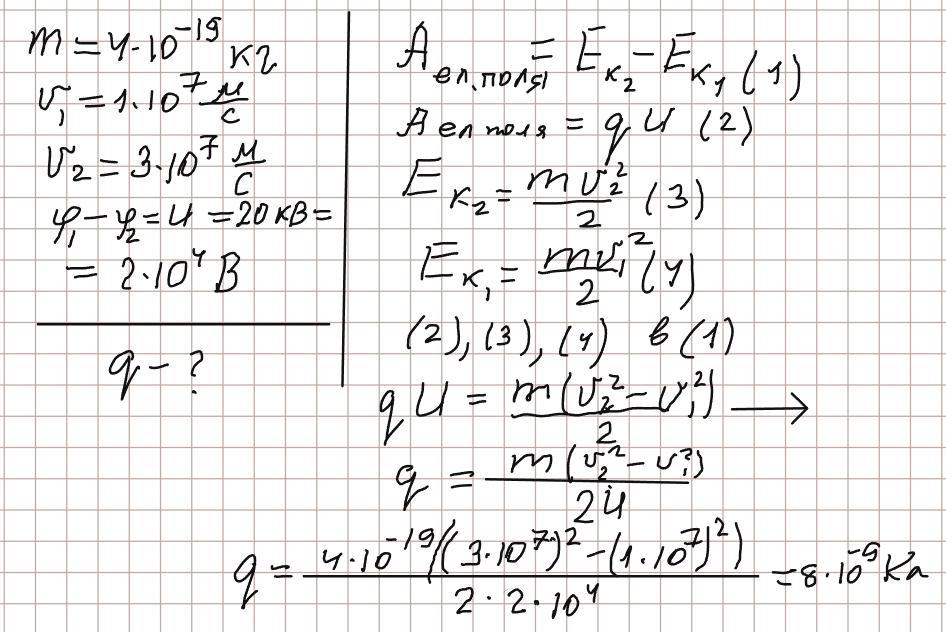 m = 4·10⁻¹⁹ кг
v₁ = 1·10⁷ м/с
v₂ = 3·10⁷ м/с
φ₁ − φ₂ = U = 20 кВ =
= 2·10⁴ В
q − ?
A ел.поля = Eк₂ − Eк₁ (1)
A ел поля = qU (2)
Eк₂ = mv₂²/2 (3)
Eк₁ = mv₁²/2 (4)
(2), (3), (4) в (1)
qU = m(v₂² − v₁²)/2 →
q = m(v₂² − v₁²)/2U
q = 4·10⁻¹⁹((3·10⁷)² − (1·10⁷)²)/2·2·10⁴ = 8·10⁻⁹ Кл